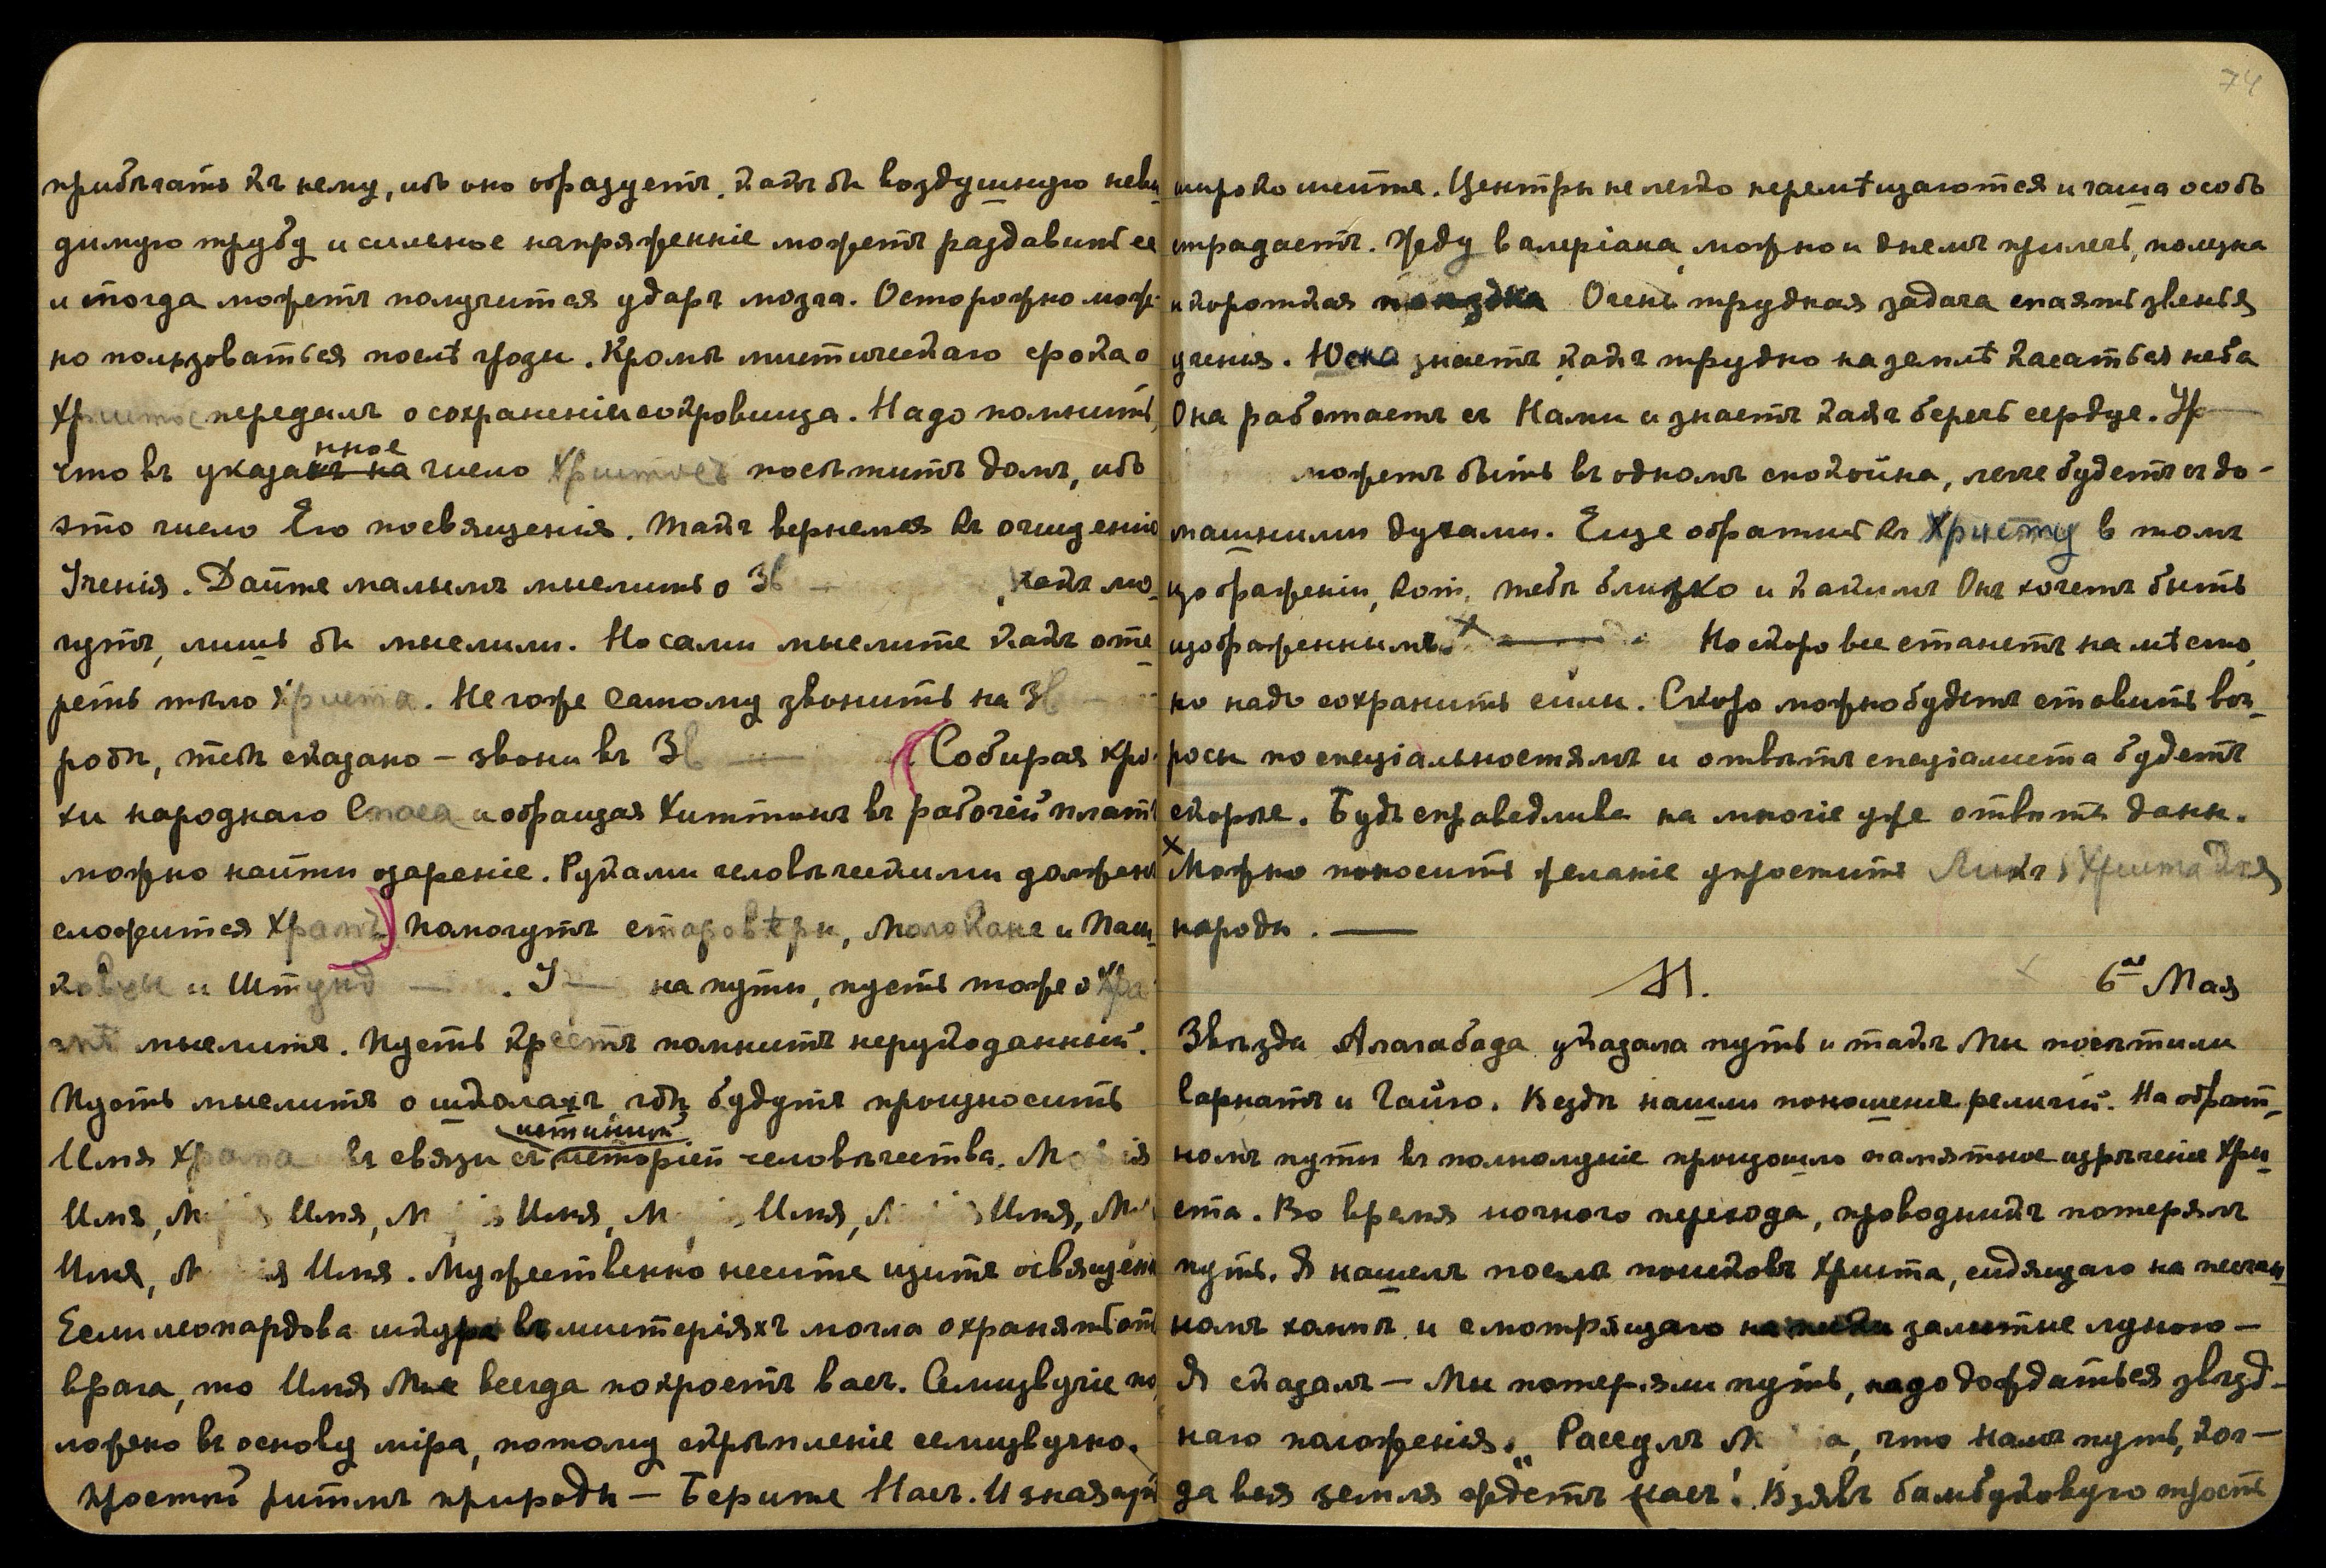 74
прибѣгать къ нему, ибо оно образуетъ какъ бы воздушную неви
димую трубу и сильное напряженніе можетъ раздавить ее
и тогда можетъ получиться ударъ мозга. Осторожно мож-
но пользоваться послѣ грозы. Кромѣ мистическаго срока о
Христос передалъ о сохраненіи сокровища. Надо помнить,
что въ указанное число Христосъ посѣтитъ домъ, ибо
это число Его посвященія. Такъ вернемся къ очищенію
Ученія. Дайте малымъ мыслить о Зв — какъ мо-
гутъ, лишь бы мыслили. Но сами мыслите какъ оте-
реть тѣло Христа. Негоже Самому звонить на Зв —
робы, тебѣ сказано — звони въ Зв — (Собирая кро-
хи народнаго Спаса и обращая Хиттонъ въ рабочій плать
можно найти озареніе. Руками человѣческими долженъ
сложиться Храмъ) Помогутъ старовѣры, Молокане и Паш
ковцы и Штунд — . У — на пути, пусть тоже о Хра
мѣ мыслитъ. Пусть крестъ помнитъ нерукоданный.
Пусть мыслитъ о школахъ, гдѣ будутъ произносить
Имя Храма въ связи съ истиной исторіей человѣчества. М ія
Имя, М я Имя, М я Имя, М я Имя, М я Имя, М
Имя, М ія Имя. Мужественно несите щитъ освящен
Если леопардова шкура въ мистеріяхъ могла охранять от
врага, то Имя Мое всегда покроетъ васъ. Семизвучіе по
ложено въ основу міра, потому скрѣпленіе семизвучно.
простой ритмъ природы — Берите Насъ. И зная при
широко шейте. Центры не легко перемѣщаются и чаша особ
страдаетъ. Жду валеріана, можно и днемъ прилечь, полезна
и короткая поездка Очень трудная задача спаять звенья
ученія. Юсна знаетъ какъ трудно на землѣ касаться неба
Она работаетъ съ Нами и знаетъ какъ беречь сердце. Ур —
можетъ быть въ одномъ спокойна, легче будетъ съ до-
машними духами. Еще обратись къ Христу в томъ
изображеніи, кот. тебѣ близко и какимъ Онъ хочетъ быть
изображеннымъ. х — Но скоро все станетъ на мѣсто,
но надо сохранить силы. Скоро можно будетъ ставить воп-
росы по спеціальностямъ и отвѣтъ спеціалиста будетъ
скорѣе. Будь справедлива на многіе уже отвѣты даны.
х Можно поносить желаніе упростить Ликъ Христа для
народы. —
М. 6ое Мая
Звѣзда Аллагабада указала путь и такъ Мы посѣтили
Сарнатъ и Гайю. Вездѣ нашли поношеніе религій. На обрат-
номъ пути въ полнолуніе произошло памятное изрѣченіе Хри
ста. Во время ночного перехода, проводникъ потерялъ
путь. Я нашелъ послѣ поисковъ Христа, сидящаго на песчан
номъ холмѣ и смотрящаго на пески залитые луною —
Я сказалъ — Мы потеряли путь, надо дождаться звѣзд-
наго положенія. „Рассулъ М а, что намъ путь, ког —
да вся земля ждетъ насъ!. Взявъ бамбуковую трость